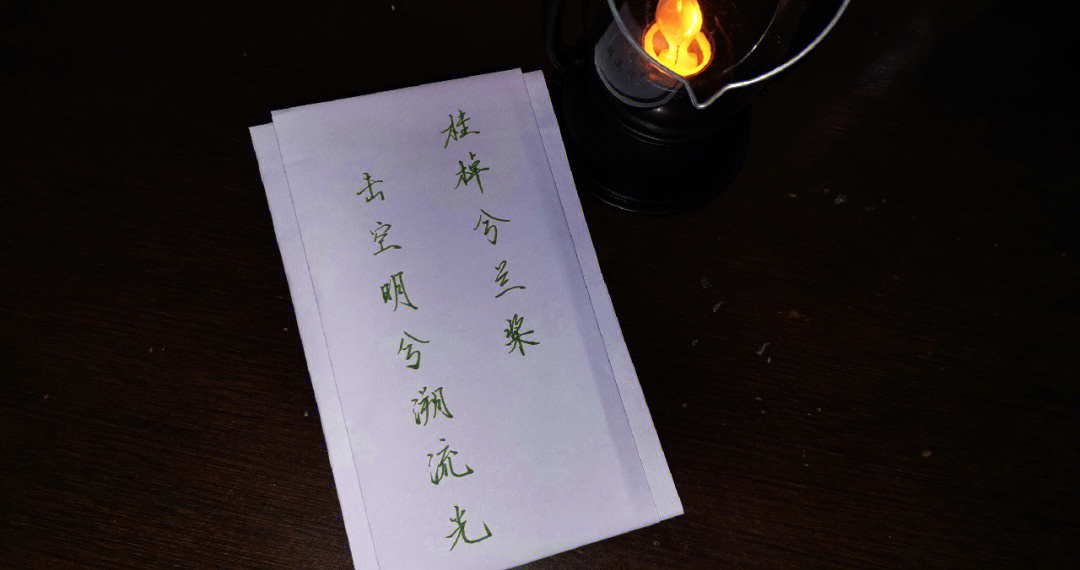 桂棹兮兰桨
击空明兮溯流光